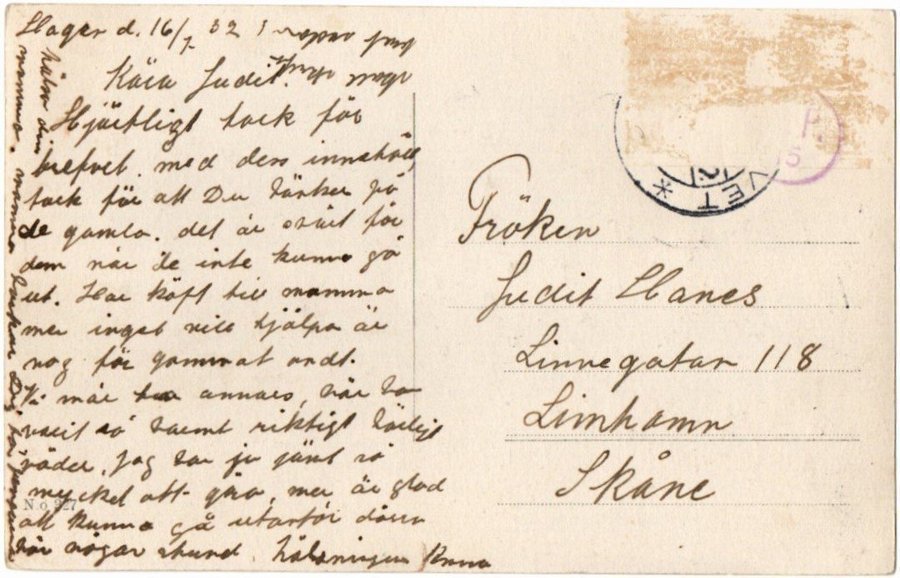 Hager d. 16/7 32
Kära Judit.
Hjärtligt tack för
brefvet. med ders innehåll
tack för att Du tänker på
de gamla. det är svårt för
dem när de inte kunna gå
ut. Har köpt till mamma
men inget vill hjälpa är
nog för gammalt ondt.
Vi mår bra annars, här har
varit så varmt riktigt härligt
väder, Jag har ju jämt så
mycket att göra, men är glad
att kunna gå utanför dörren
här någon stund. hälsningen Anna
hälsa din
mamma. mamma tackar Dig för
Fröken
Judit Hanes
Linnegatan 118
Limhamn
Skåne
VET *
No 927